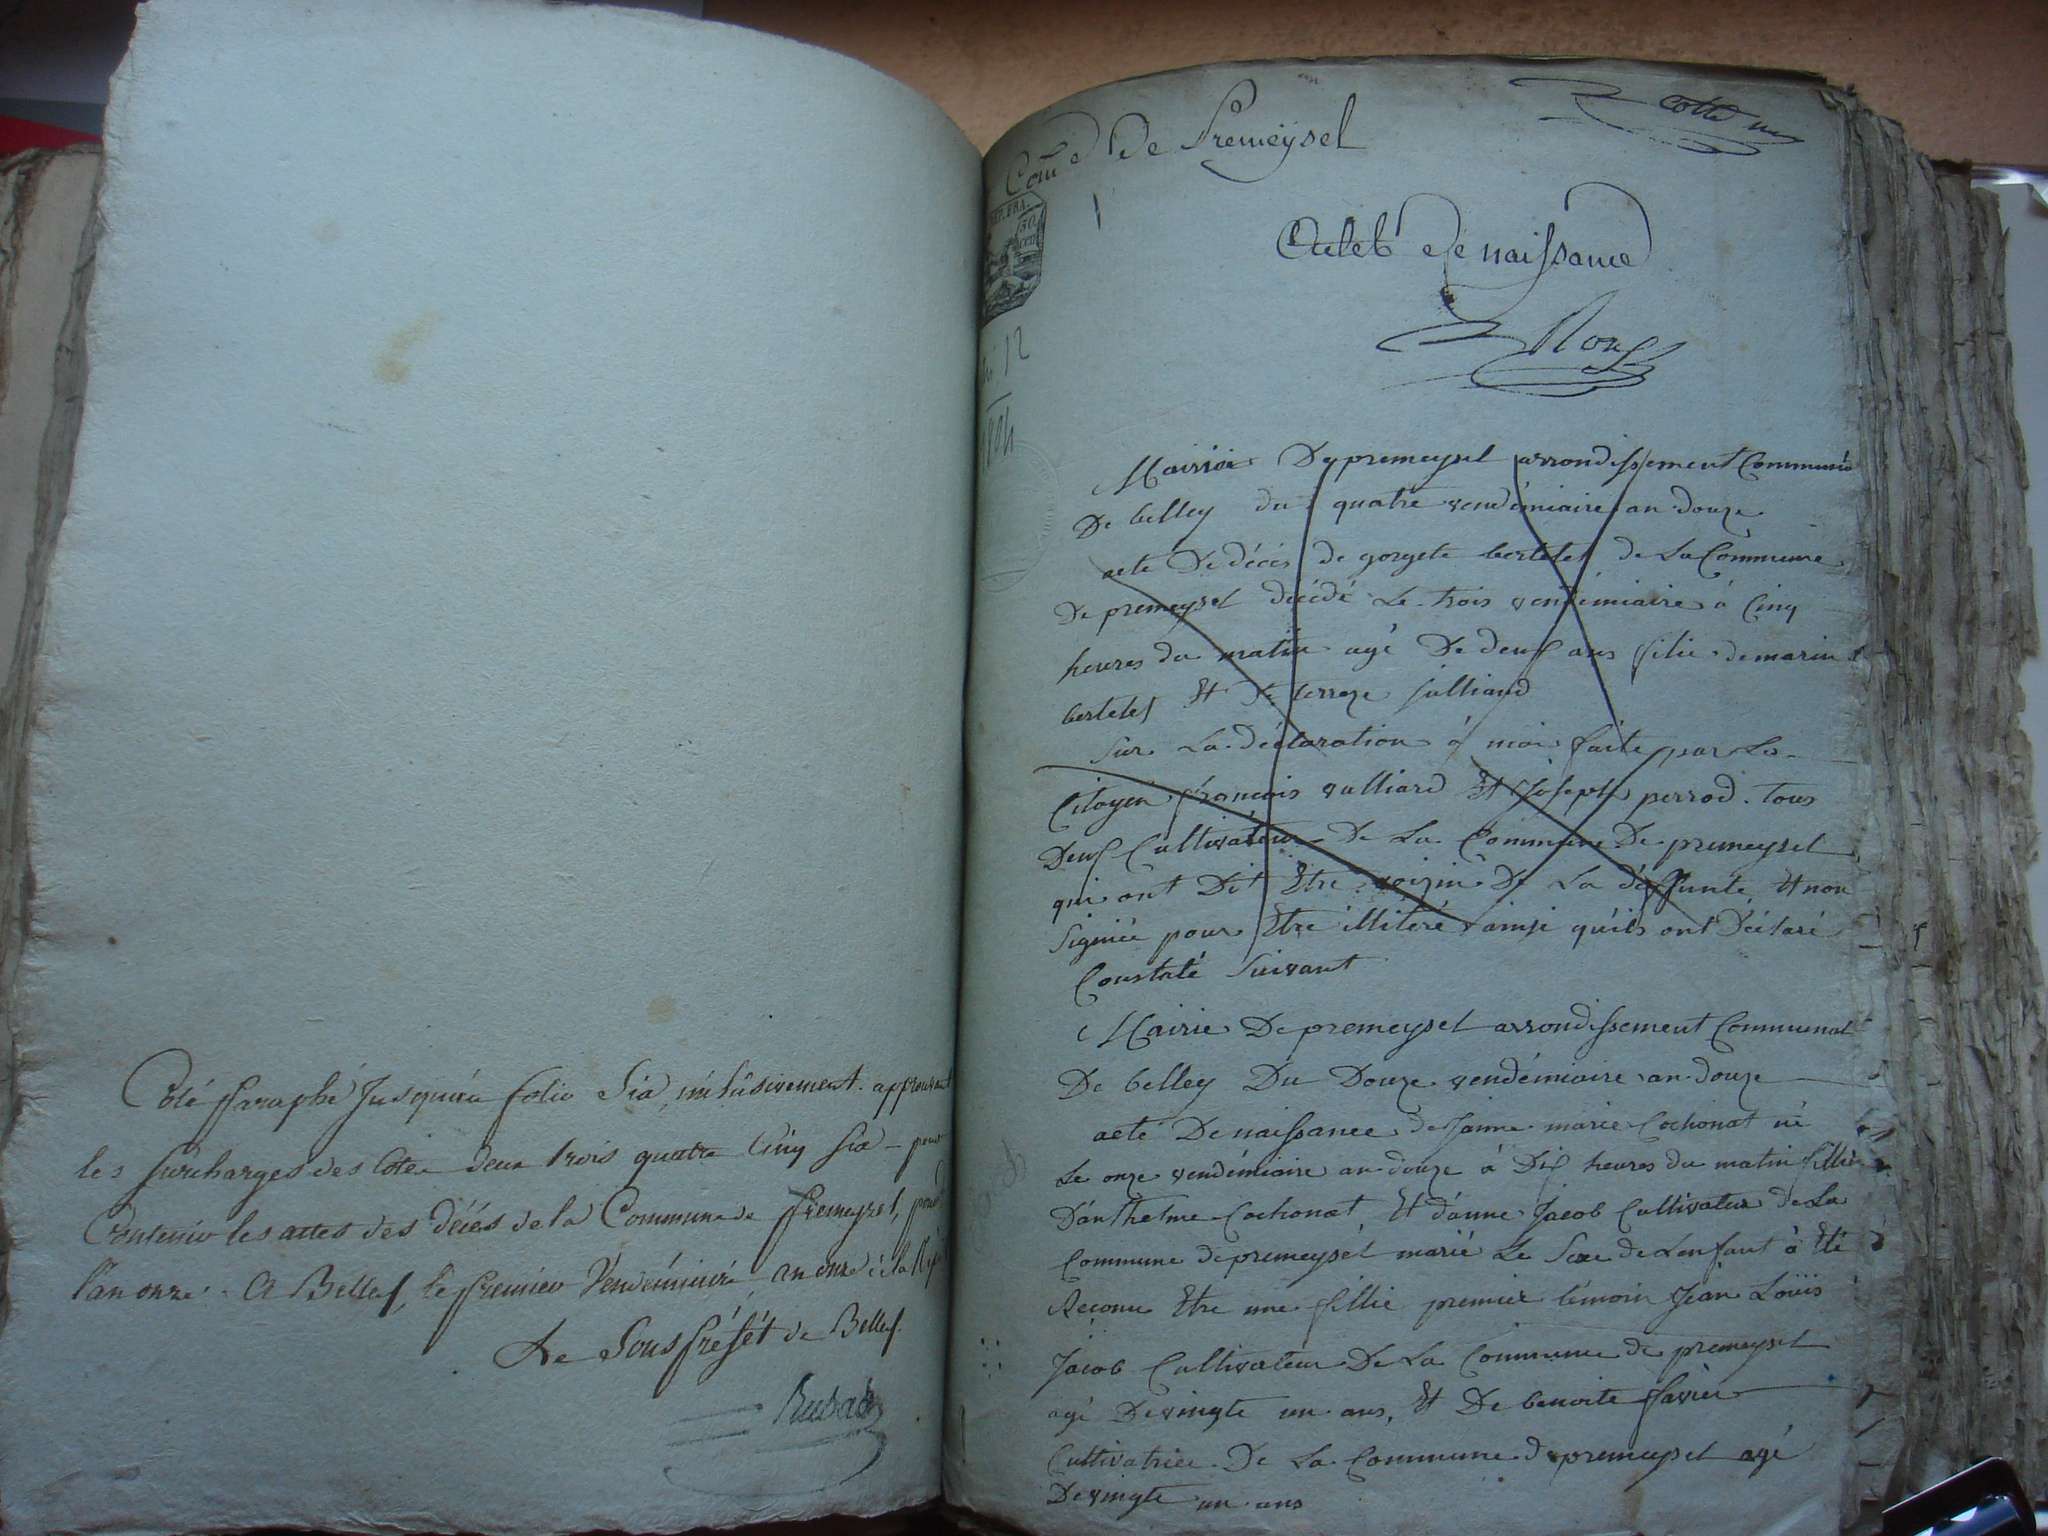 Coté & Paraphé Jusqu'au folio Six inclusivement. approuvant
les surcharges des Cotes deux trois quatre Cinq Six - pour
Contenir les actes des Décès de la Commune de Premeyzel, pour
l'an onze. A Belley, le premier Vendémiaire an onze de la Rép
Le Sous Préfét de Belley.
Rubat
Comⁿᵉ De Premeÿsel
cotte un
REP. FRA.
50
cent
1
an 12
1804
Actes de naissance
Mairie De premeysel arrondissement Communal
De belley du quatre vendémiaire an douze
acte De décès de gorgete bertelet de La Commune
De premeysel décédé Le trois vendémiaire à Cinq
heures du matin agé De deux ans fillie de marin
bertelet Et De terreze julliand
sur La déclaration à moi faite par Le
Citoyen françois vulliard Et Joseph perrod. tous
Deux Cultivateur De La Commune De premeysel
qui ont Dit Etre voizin De La deffunte Et non
Signiée pour Etre illiteré ainsi qu'ils ont Déclaré
Constaté Suivant
Mairie De premeysel arrondissement Communal
De belley Du Douze vendémiaire an douze
acte De naissance de Janne marie Cochonat né
Le onze vendémiaire an douze à Dix heures du matin fillie
D'anthelme Cochonat, Et d'anne Jacob Cultivateur de La
Commune de premeysel marié Le Sexe de Lenfant à Eté
Reconu Etre une fillie premier témoin Jean Loüis
Jacob Cultivateur De La Commune de premeysel
agé De vingte un ans, Et De benoite favier
Cultivatrice De La Commune de premeysel agé
De vingte un ans